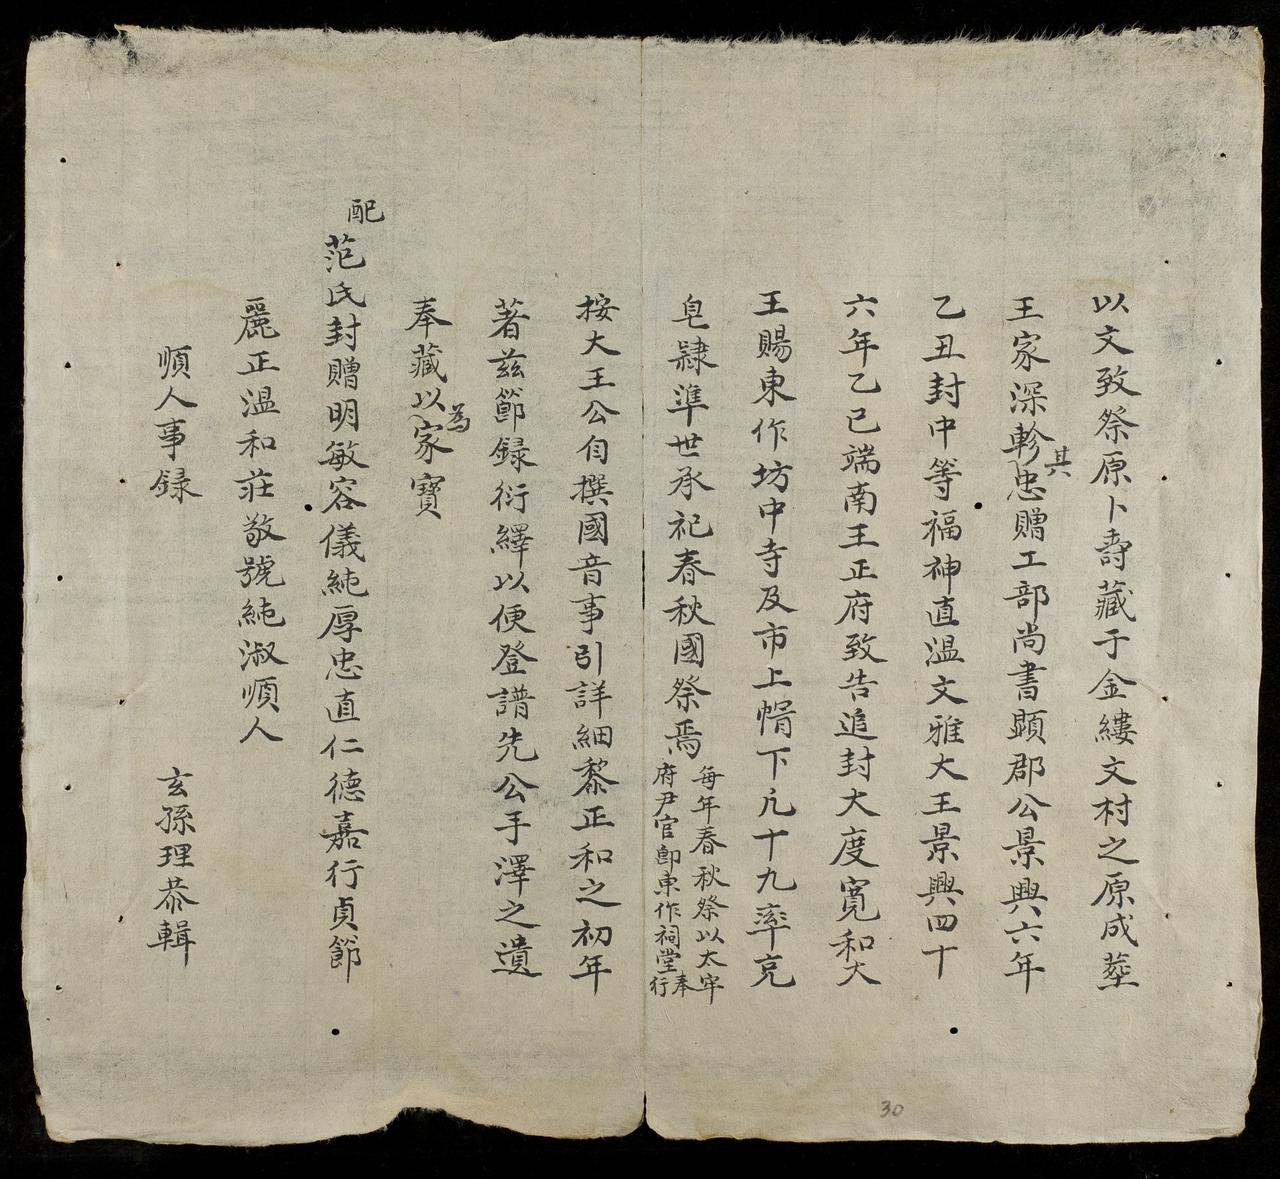 以文致祭原卜壽藏于金縷文村之原成塟
王家深軫其忠贈工部尚書顕郡公景興六年
乙丑封中等福神直溫文雅大王景興四十
六年乙巳端南王正府致告追封大度寬和大
王賜東作坊中寺及市上帽下凢十九率充
皂隷準世承祀春秋國祭焉
每年春秋祭以太牢奉
府尹官卽東作祠堂行
按大王公自撰國音事引詳細黎正和之初年
著兹節録衍繹以便登譜先公手澤之遺
奉藏以為家寶
配
范氏封贈明敏容儀純厚忠直仁德嘉行貞節
麗正溫和莊敬號純淑順人
順人事録 玄孫理恭輯
30